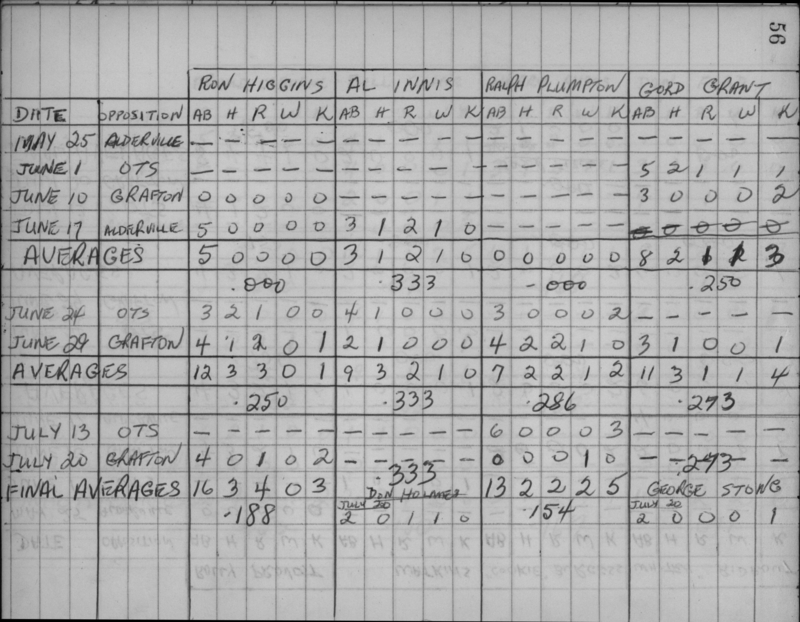 56
RON HIGGINS AL INNIS RALPH PLUMPTON GORD GRANT
DATE OPPOSITION AB H R W K AB H R W K AB H R W K AB H R W K
MAY 25 ALDERVILLE — — — — — — — — — — — — — — — — — — — —
JUNE 1 OTS — — — — — — — — — — — — — — — 5 2 1 1 1
JUNE 10 GRAFTON 0 0 0 0 0 — — — — — — — — — — 3 0 0 0 2
JUNE 17 ALDERVILLE 5 0 0 0 0 3 1 2 1 0 — — — — — 0 0 0 0 0
AVERAGES 5 0 0 0 0 3 1 2 1 0 0 0 0 0 0 8 2 1 1 3
.000 .333 .000 .250
JUNE 24 OTS 3 2 1 0 0 4 1 0 0 0 3 0 0 0 2 — — — — —
JUNE 29 GRAFTON 4 1 2 0 1 2 1 0 0 0 4 2 2 1 0 3 1 0 0 1
AVERAGES 12 3 3 0 1 9 3 2 1 0 7 2 2 1 2 11 3 1 1 4
.250 .333 .286 .273
JULY 13 OTS — — — — — — — — — — 6 0 0 0 3 — — — — —
JULY 20 GRAFTON 4 0 1 0 2 — — — — — 0 0 0 1 0 — — — — —
.333 .273
FINAL AVERAGES 16 3 4 0 3 DON HOLMES 13 2 2 2 5 GEORGE STONG
.188 JULY 20 .154 JULY 20
2 0 1 1 0 2 0 0 0 1